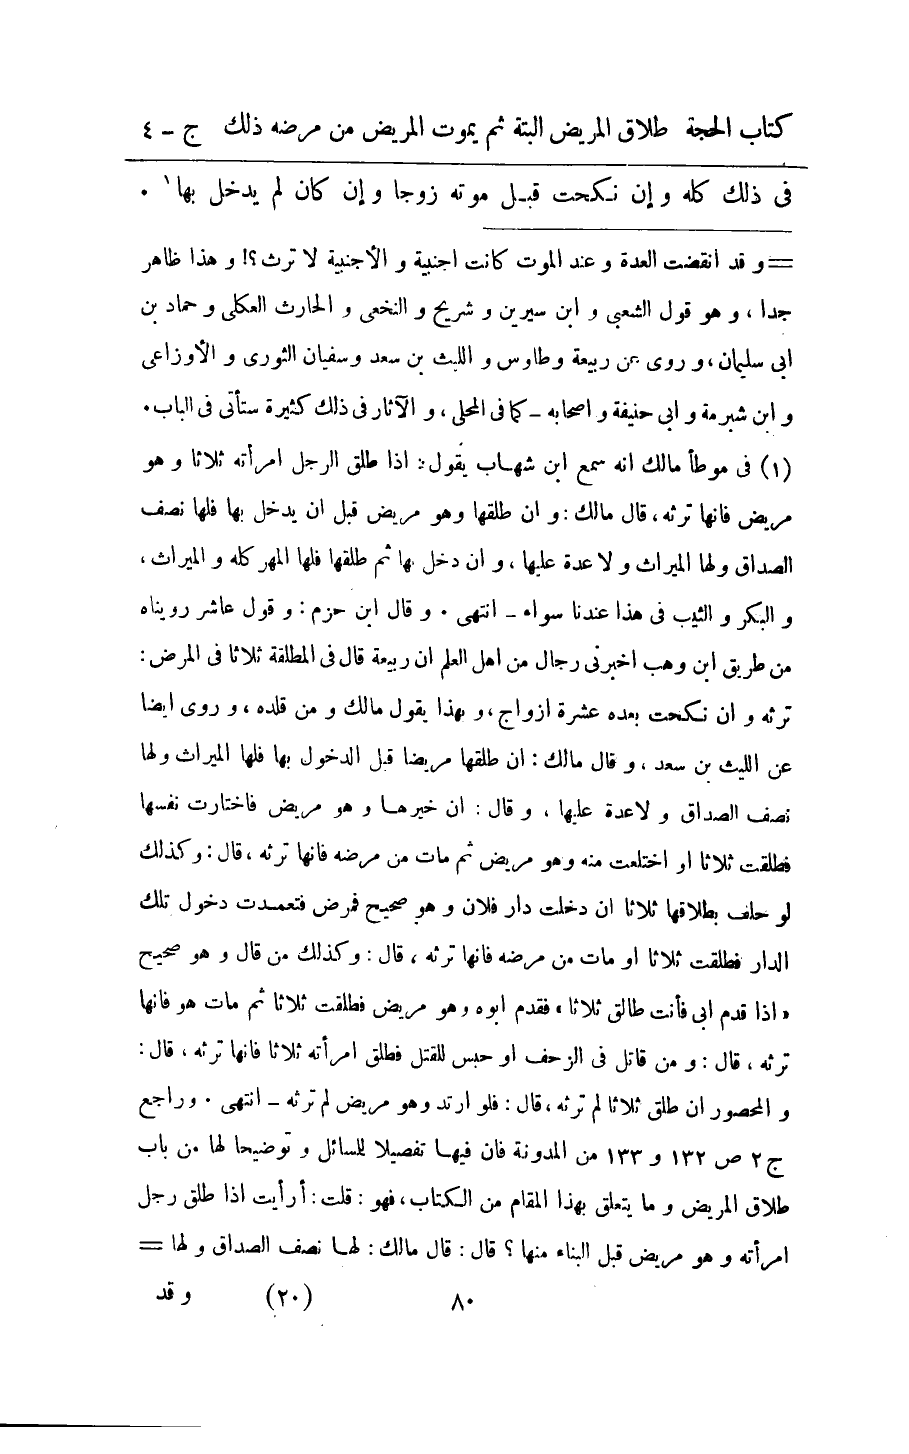 كتاب الحجة طلاق المريض البتة ثم يموت المريض من مرضه ذلك ج – ٤
فى ذلك كله و إن نكحت قبل موته زوجا و إن كان لم يدخل بها١ .
= و قد انقضت العدة و عند الموت كانت اجنبية و الأجنبية لا ترث ؟! و هذا ظاهر
جدا ، و هو قول الشعبى و ابن سيرين و شريح و النخعى و الحارث العكلى و حماد بن
ابى سليمان ، و روى عن ربيعة وطاوس و الليث بن سعد وسفيان الثورى و الأوزاعى
و ابن شبرمة و ابى حنيفة و اصحابه – كما فى المحلى ، و الآثار فى ذلك كثيرة ستأتى فى الباب .
(١) فى موطأ مالك انه سمع ابن شهاب يقول : اذا طلق الرجل امرأته ثلاثا و هو
مريض فانها ترثه ، قال مالك : و ان طلقها وهو مريض قبل ان يدخل بها فلها نصف
الصداق ولها الميراث و لا عدة عليها ، و ان دخل بها ثم طلقها فلها المهر كله و الميراث ،
و البكر و الثيب فى هذا عندنا سواء – انتهى . و قال ابن حزم : و قول عاشر رويناه
من طريق ابن وهب اخبرنى رجال من اهل العلم ان ربيعة قال فى المطلقة ثلاثا فى المرض :
ترثه و ان نكحت بعده عشرة ازواج ، و بهذا يقول مالك و من قلده ، و روى ايضا
عن الليث بن سعد ، و قال مالك : ان طلقها مريضا قبل الدخول بها فلها الميراث ولها
نصف الصداق و لاعدة عليها ، و قال : ان خيرها و هو مريض فاختارت نفسها
فطلقت ثلاثا او اختلعت منه وهو مريض ثم مات من مرضه فانها ترثه ، قال : وكذلك
لو حلف بطلاقها ثلاثا ان دخلت دار فلان و هو صحيح فمرض فتعمدت دخول تلك
الدار فطلقت ثلاثا او مات من مرضه فانها ترثه ، قال : وكذلك من قال و هو صحيح
« اذا قدم ابى فأنت طالق ثلاثا » فقدم ابوه وهو مريض فطلقت ثلاثا ثم مات هو فانها
ترثه ، قال : و من قاتل فى الزحف او حبس للقتل فطلق امرأته ثلاثا فانها ترثه ، قال :
و المحصور ان طلق ثلاثا لم ترثه ، قال : فلو ارتد وهو مريض لم ترثه – انتهى . وراجع
ج ٢ ص ١٣٢ و ١٣٣ من المدونة فان فيها تفصيلا للسائل و توضيحا لها من باب
طلاق المريض و ما يتعلق بهذا المقام من الكتاب ، فهو : قلت : أرأيت اذا طلق رجل
امرأته و هو مريض قبل البناء منها ؟ قال : قال مالك : لها نصف الصداق و لها =
٨٠ (٢٠) و قد